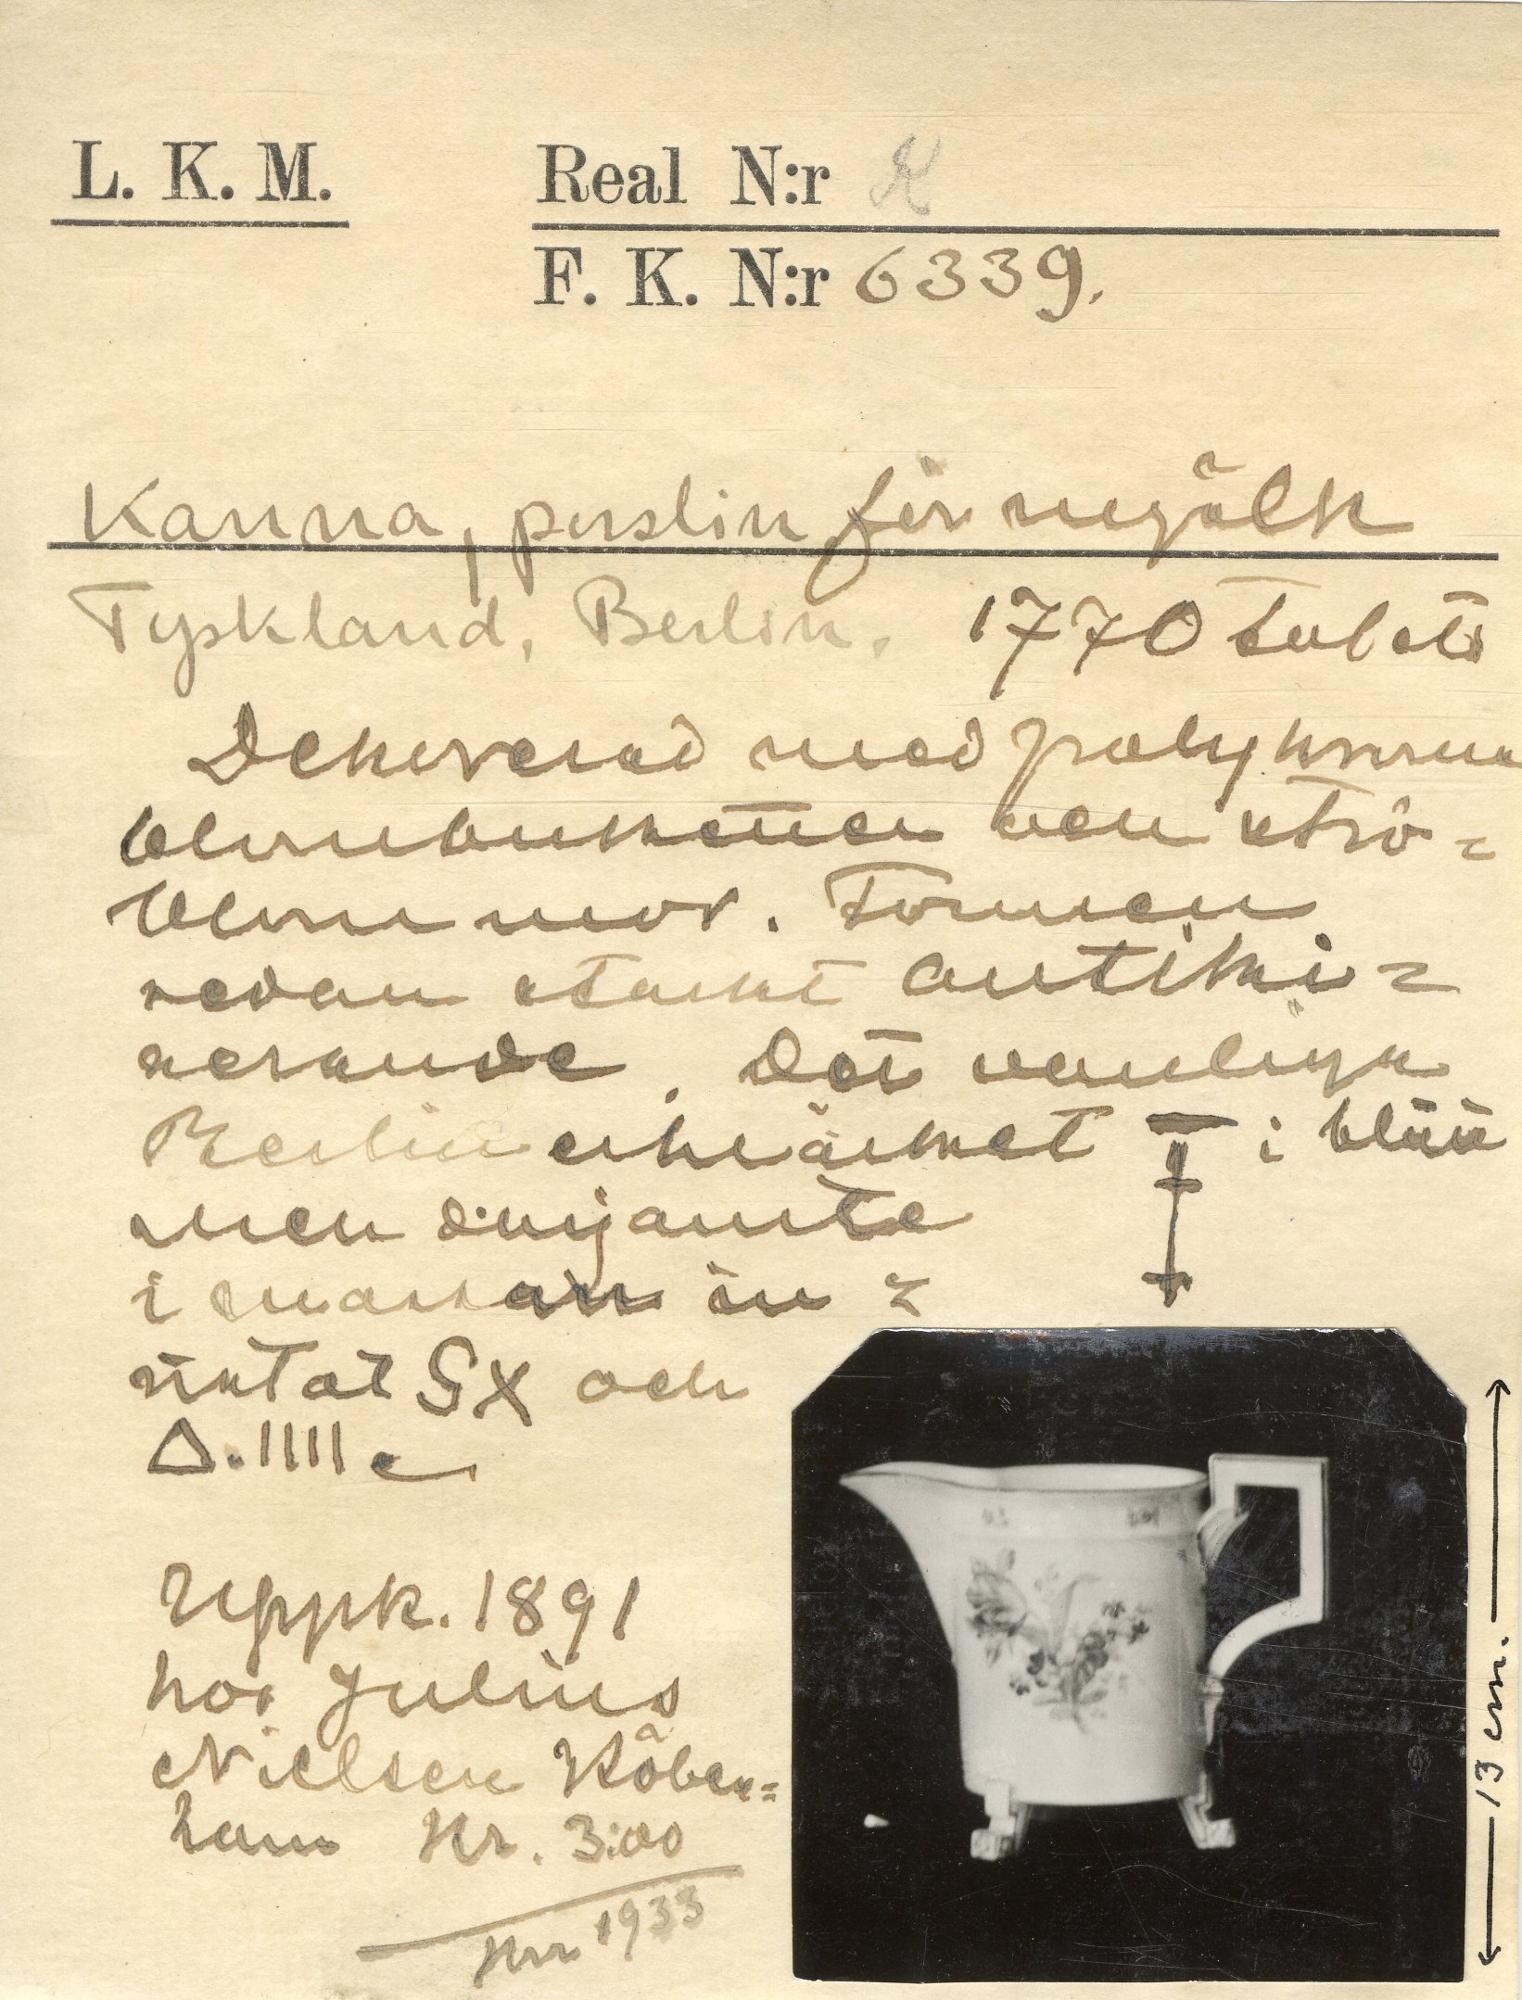 L. K. M.
Real N:r K
F. K. N:r 6339.
Kanna, porslin för mjölk
Tyskland, Berlin. 1770 talet
Dekorerad med polykroma
blombuketter och strö=
blommor. Formen
redan starkt antiki=
serande. Det vanliga
Berlinermärket i blått
men
i massan in=
ristat SX och
Δ.IIII
Uppk. 1891
hos Julius
Nielsen Köben=
hamn Kr. 3:00
1933
13 cm.